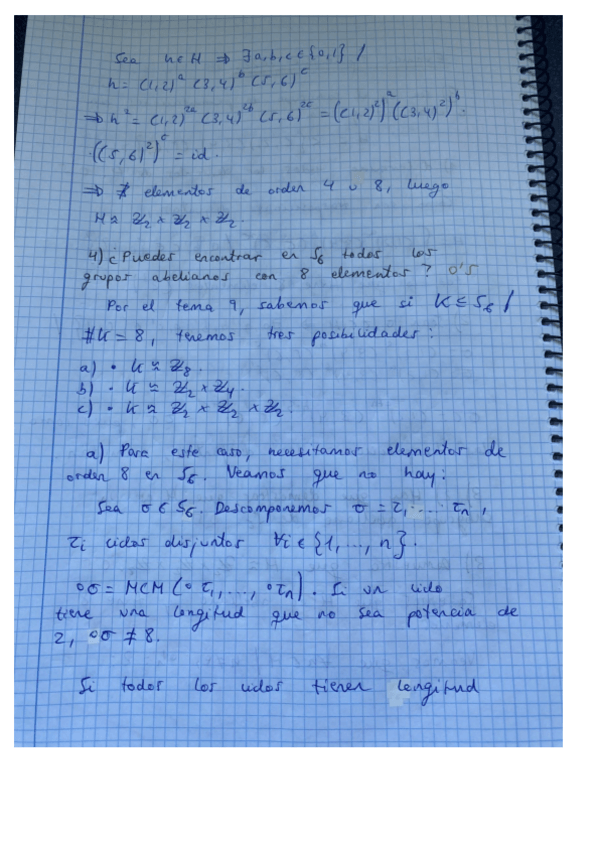 Sea h ∈ H ⇒ ∃ a, b, c ∈ {0, 1} /
h = (1,2)^a (3,4)^b (5,6)^c
⇒ h² = (1,2)^2a (3,4)^2b (5,6)^2c = ((1,2)²)^a ((3,4)²)^b ·
((5,6)²)^c = id.
⇒ ∄ elementos de orden 4 u 8, luego
H ≈ ℤ₂ × ℤ₂ × ℤ₂.
4) ¿Puedes encontrar en S₆ todos los
grupos abelianos con 8 elementos? 0'5
Por el tema 9, sabemos que si K ≤ S₆ /
#K = 8, tenemos tres posibilidades:
a) • K ≈ ℤ₈.
b) • K ≈ ℤ₂ × ℤ₄.
c) • K ≈ ℤ₂ × ℤ₂ × ℤ₂.
a) Para este caso, necesitamos elementos de
orden 8 en S₆. Veamos que no hay:
Sea σ ∈ S₆. Descomponemos σ = τ₁ · ... · τₙ,
τᵢ ciclos disjuntos ∀i ∈ {1, ..., n}.
°σ = MCM (°τ₁, ..., °τₙ). Si un ciclo
tiene una longitud que no sea potencia de
2, °σ ≠ 8.
Si todos los ciclos tienen longitud